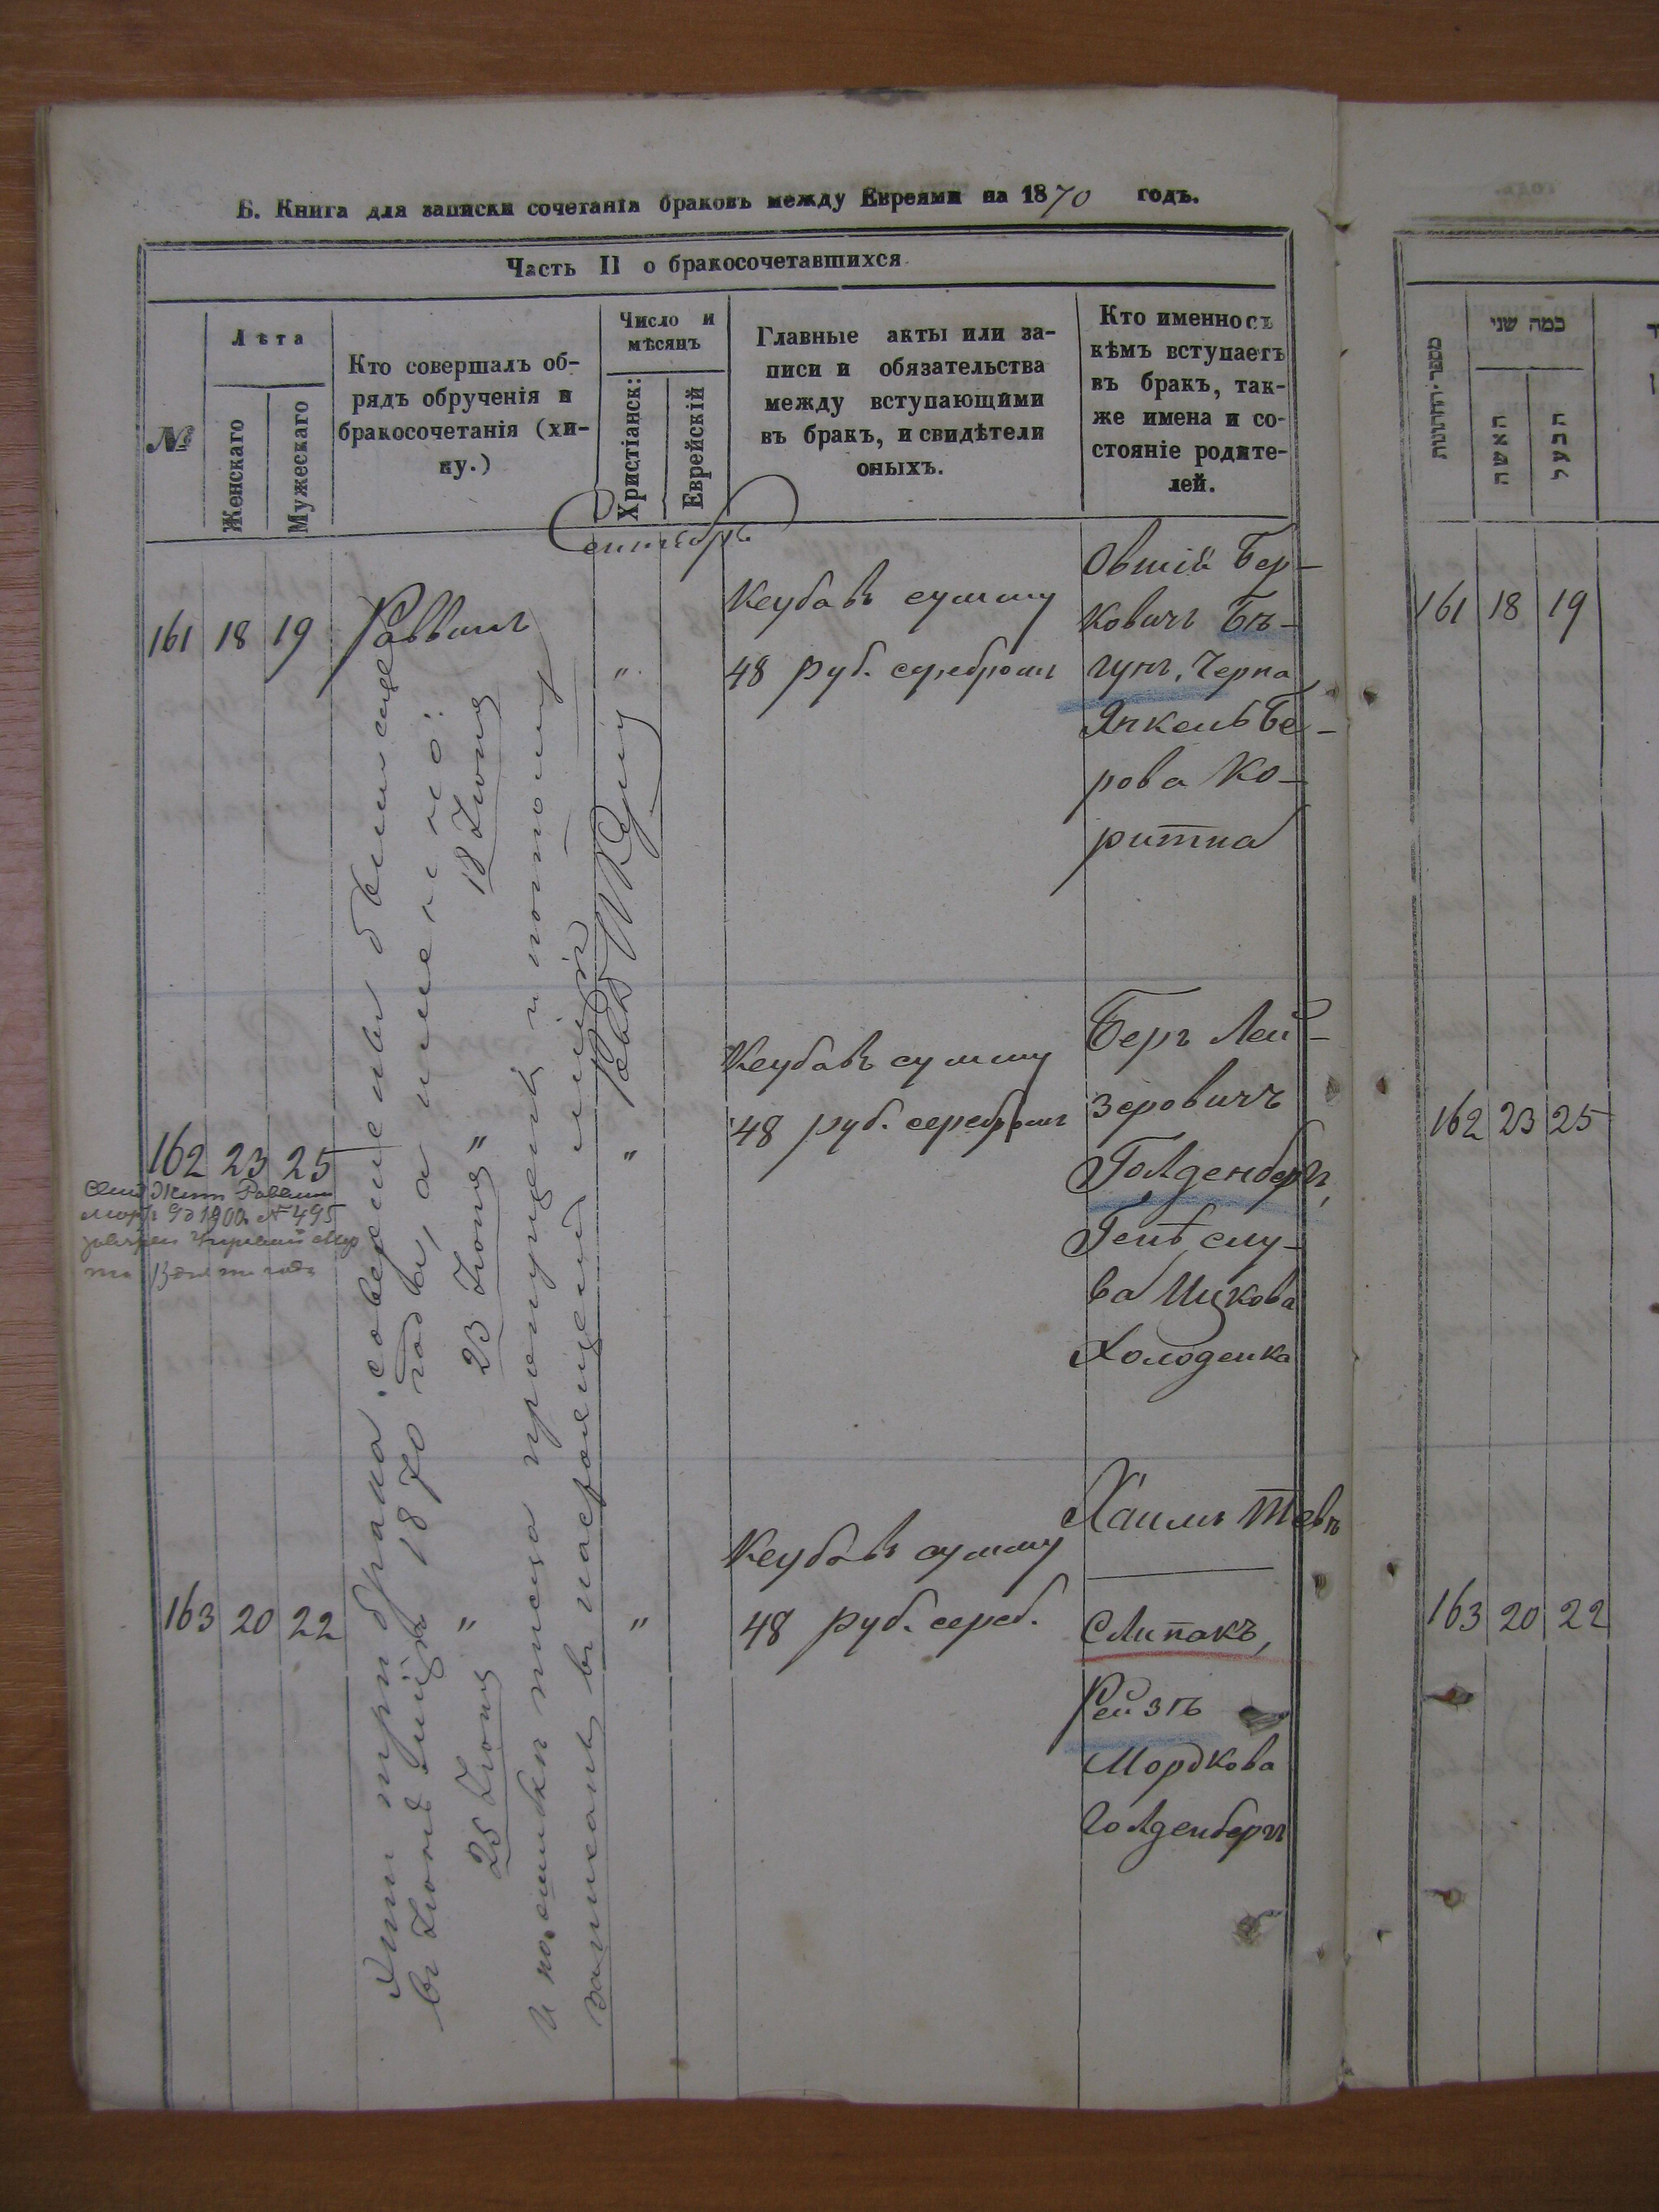 Б. Книга для записки сочетанія браковъ между Евреями на 1870 годъ.
Часть II о бракосочетавшихся
№
Лѣта
Женскаго
Мужескаго
Кто совершалъ об-
рядъ обрученія и
бракосочетанія (хи-
пу.)
Число и
мѣсяцъ
Христіанск:
Еврейскій
Главные акты или за-
писи и обязательства
между вступающими
въ бракъ, и свидѣтели
оныхъ.
Кто именно съ
кѣмъ вступаетъ
въ бракъ, так-
же имена и со-
стояніе родите-
лей.
Сентябрь
161 18 19 Раввинъ "
Кеуба въ сумму
48 руб. серебромъ
Овшій Бер-
ковичъ Бѣ-
гунъ, Черна
Янкель Бе-
рова Ко-
ритна
162 23 25 " "
Кеуба въ сумму
48 руб. серебромъ
Беръ Лей-
зеровичъ
Голденбергъ,
Ицкова
Холоденка
163 20 22 " "
Кеуба въ сумму
48 руб. сереб.
Хаимъ Тевъ
Слипакъ,
Рейзѣ
Мордкова
Голденбергъ
Эти три брака совершены были еще
въ Іюнѣ 1870 года, а именно:
25 Іюня 23 Іюня 18 Іюня
и по ошибки писца пропущены и потому
записаны въ настоящемъ
№ 495
מספר החתונות
כמה שני
האשה
הבעל
161 18 19
162 23 25
163 20 22